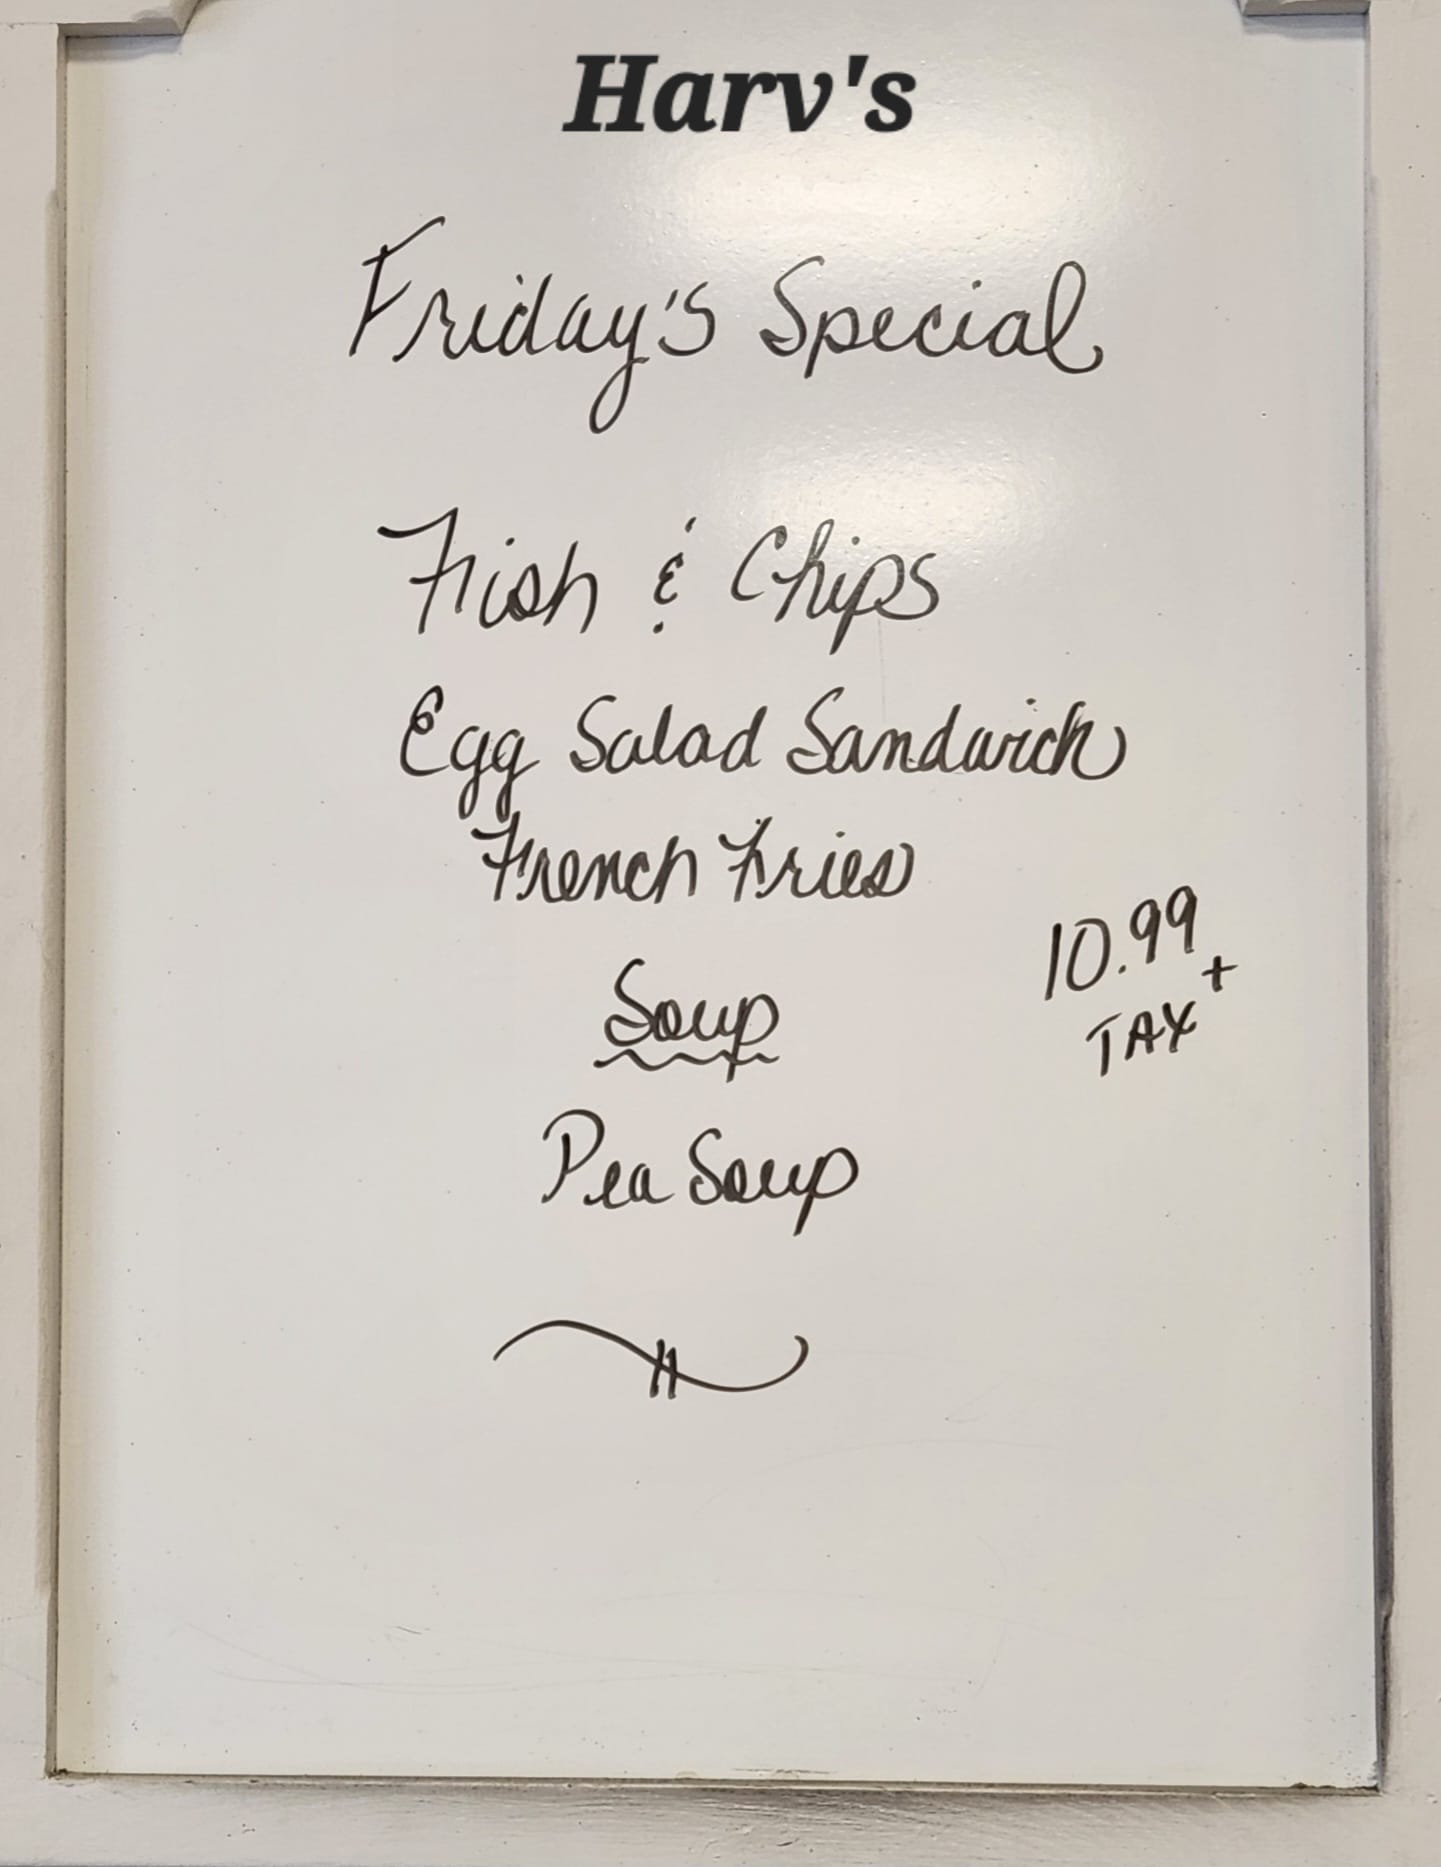 Harv's
Friday's Special
Fish & Chips
Egg Salad Sandwich
French Fries
10.99
+
TAX
Soup
Pea Soup